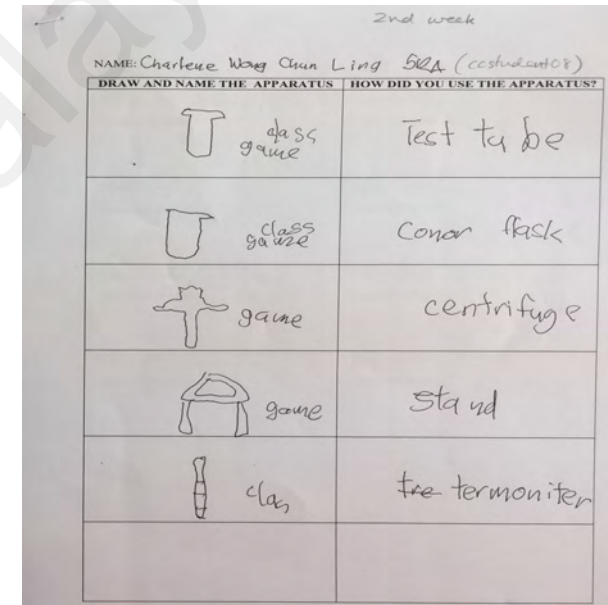 2nd week
NAME: Charlene Wong Chun Ling 5RA (ccstudent08)
DRAW AND NAME THE APPARATUS HOW DID YOU USE THE APPARATUS?
class game Test tube
class gauze Conor flask
game centrifuge
game stand
clas tre termoniter